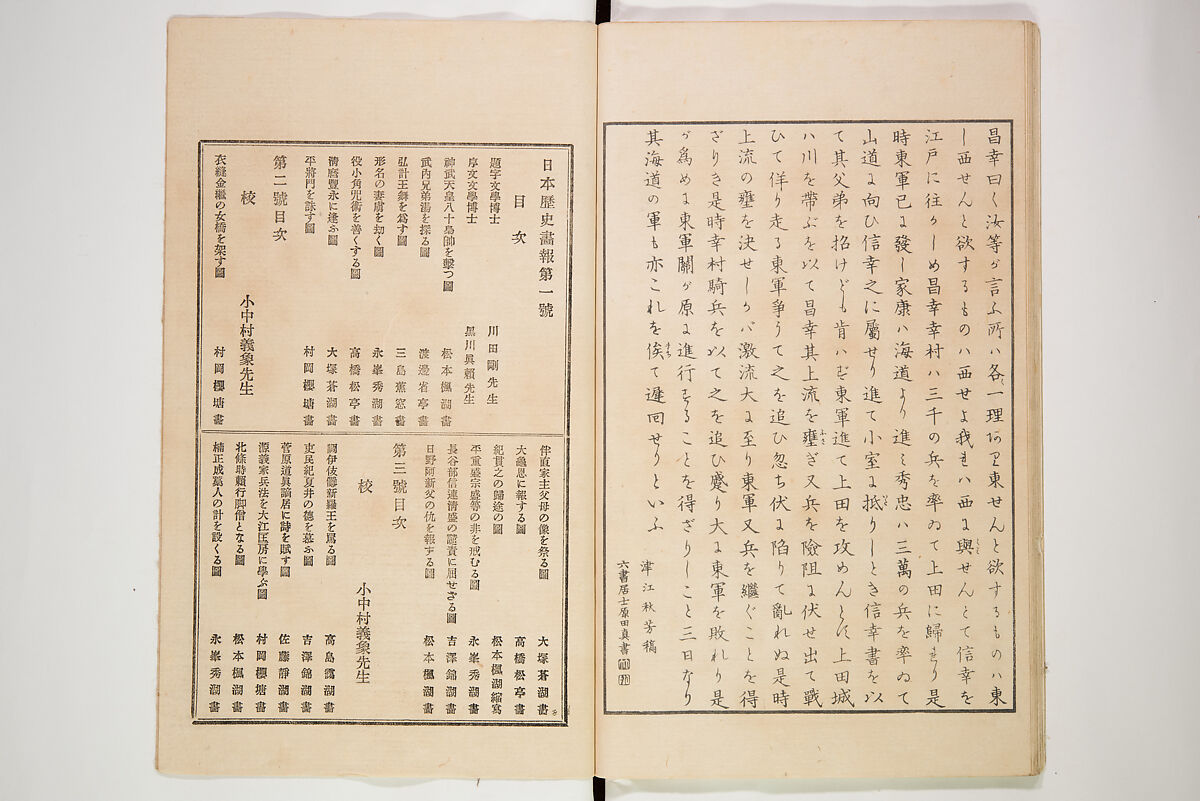 昌幸曰く汝等が言ふ所ハ各一理アリ東せんと欲するものハ東
し西せんと欲するものハ西せよ我れハ西に與せんとて信幸を
江戸に往かしめ昌幸幸村ハ三千の兵を率ゐて上田に歸せり是
時東軍已に發し家康ハ海道より進ミ秀忠ハ三萬の兵を率ゐて
山道に向ひ信幸之に屬せり進て小室に抵りしとき信幸書を以
て其父弟を招けども肯ハず東軍進て上田を攻めんとす上田城
ハ川を帶ぶを以て昌幸其上流を壅ぎ又兵を險阻に伏せ出て戰
ひて佯り走る東軍爭うて之を追ひ忽ち伏に陷りて亂れぬ是時
上流の壅を決せしかバ激流大に至り東軍又兵を繼ぐことを得
ざりき是時幸村騎兵を以て之を追ひ蹙り大に東軍を敗れり是
が爲めに東軍關が原に進行することを得ざりしこと三日なり
其海道の軍も亦これを俟て遲回せりといふ
津江秋芳稿
六書居士原田真書
日本歷史畵報第一號
目次
題字文學博士 川田剛先生
序文文學博士 黑川眞賴先生
神武天皇八十梟帥を擊つ圖 松本楓湖畵
武内兄弟湯を探る圖 渡邊省亭畵
弘計王舞を爲す圖 三島蕉窓畵
形名の妻虜を劫く圖 永峯秀湖畵
役小角咒術を善くする圖 高橋松亭畵
淸麿豐永に逢ふ圖 大塚蒼湖畵
平將門を誅す圖 村岡櫻塘畵
第二號目次
校 小中村義象先生
衣縫金繼の女橋を架す圖 村岡櫻塘畵
伴直家主父母の像を祭る圖 大塚蒼湖畵
大龜恩に報する圖 高橋松亭畵
紀貫之の歸途の圖 松本楓湖縮寫
平重盛宗盛等の非を戒むる圖 永峯秀湖畵
長谷部信連淸盛の譴責に屈せざる圖 吉澤錦湖畵
日野阿新父の仇を報す圖 松本楓湖畵
第三號目次
校 小中村義象先生
調伊伎儺新羅王を罵る圖 高島靄湖畵
吏民紀夏井の德を慕ふ圖 吉澤錦湖畵
菅原道眞謫居に詩を賦す圖 佐藤靜湖畵
源義家兵法を大江匡房に學ぶ圖 村岡櫻塘畵
北條時賴行脚僧となる圖 松本楓湖畵
楠正成藁人の計を設くる圖 永峯秀湖畵